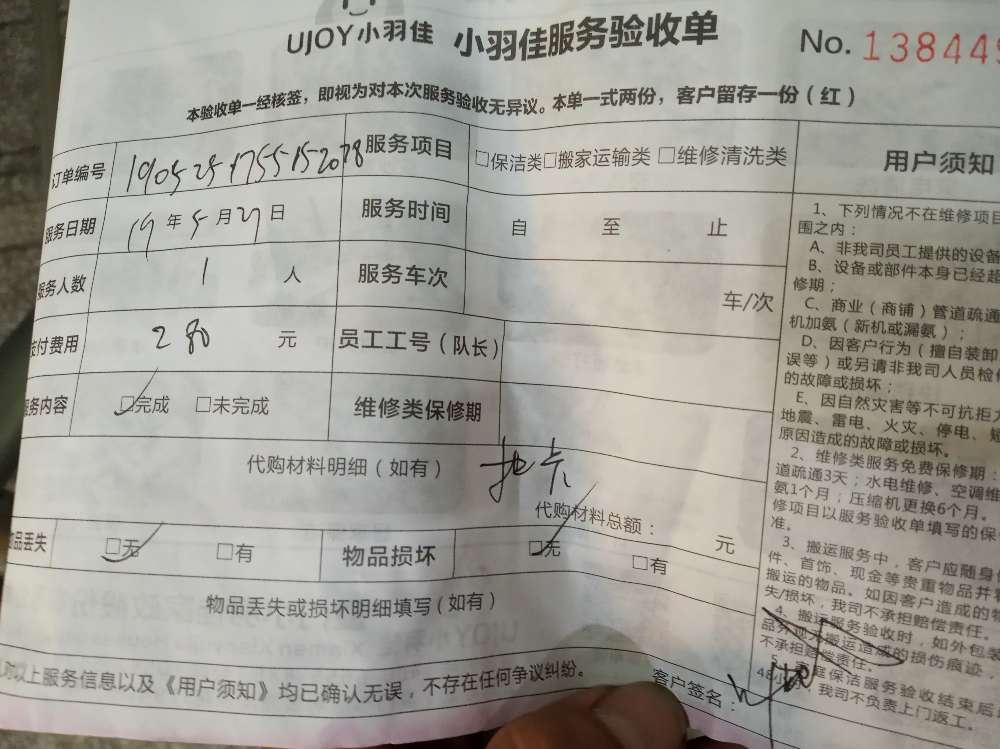 UJOY小羽佳 小羽佳服务验收单 No. 138449
本验收单一经核签，即视为对本次服务验收无异议。本单一式两份，客户留存一份（红）
订单编号 服务项目 □保洁类□搬家运输类 □维修清洗类
服务日期 19年5月27日 服务时间 自 至 止
服务人数 1 人 服务车次 车/次
支付费用 280 元 员工工号（队长）
服务内容 □完成 □未完成 维修类保修期
代购材料明细（如有）
代购材料总额： 元
物品丢失 □无 □有 物品损坏 □无 □有
物品丢失或损坏明细填写（如有）
以上服务信息以及《用户须知》均已确认无误，不存在任何争议纠纷。
客户签名：
用户须知
1、下列情况不在维修项目
围之内：
A、非我司员工提供的设备
B、设备或部件本身已经超
修期；
C、商业（商铺）管道疏通
机加氨（新机或漏氨）；
D、因客户行为（擅自装卸
误等）或另请非我司人员检修
的故障或损坏；
E、因自然灾害等不可抗拒力
地震、雷电、火灾、停电、短
原因造成的故障或损坏。
2、维修类服务免费保修期：
道疏通3天；水电维修、空调维
氨1个月；压缩机更换6个月。
修项目以服务验收单填写的保
准。
3、搬运服务中，客户应随身
件、首饰、现金等贵重物品并
搬运的物品。如因客户造成的物
失/损坏，我司不承担赔偿责任。
4、搬运服务验收时，如外包装
品外观无搬运造成的损伤痕迹，
不承担赔偿责任。
家庭保洁服务验收结束后
48小时，我司不负责上门返工。